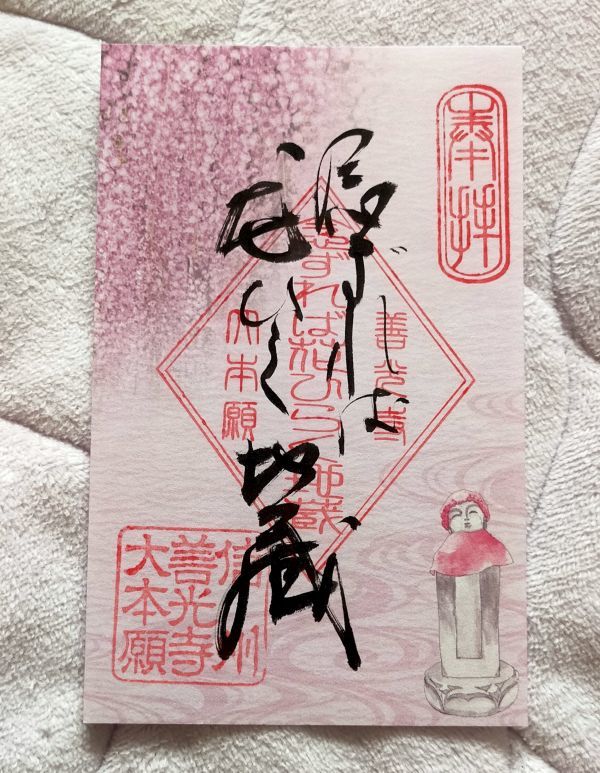 奉拝
念ずれば
花ひらく
地蔵
善光寺
念ずれば花ひらく地蔵
大本願
信州
善光寺
大本願